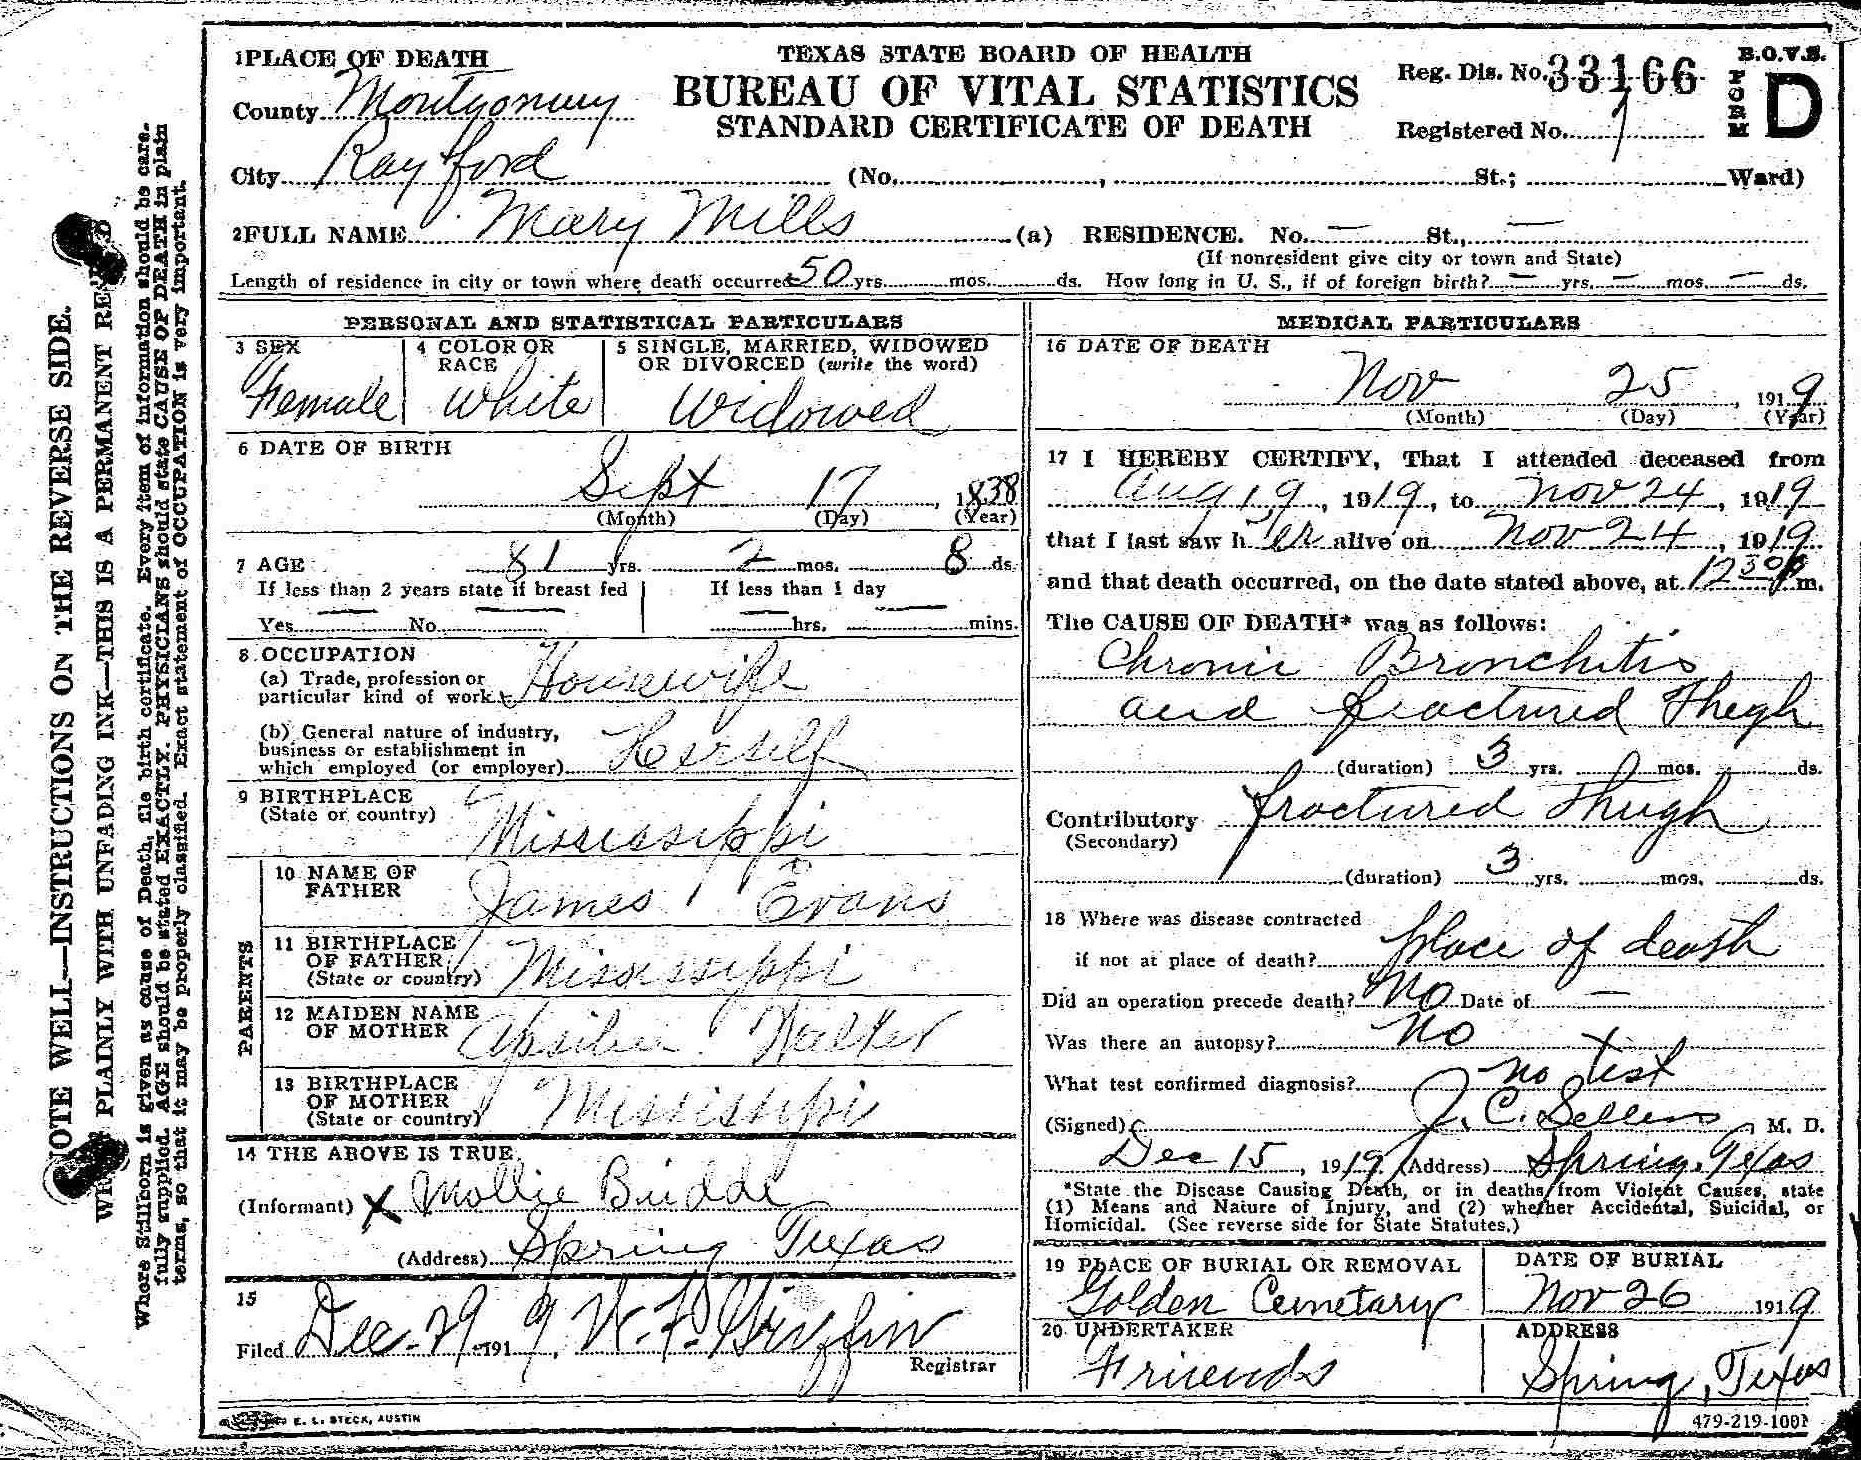 1 PLACE OF DEATH
County Montgomery
City Rayford (No. , St.; Ward)
TEXAS STATE BOARD OF HEALTH
BUREAU OF VITAL STATISTICS
STANDARD CERTIFICATE OF DEATH
Reg. Dis. No. 33166
Registered No. 1
B.O.V.S.
FORM D
2 FULL NAME Mary Mills (a) RESIDENCE. No. — St., —
(If nonresident give city or town and State)
Length of residence in city or town where death occurred 50 yrs. mos. ds. How long in U. S., if of foreign birth? — yrs. — mos. — ds.
PERSONAL AND STATISTICAL PARTICULARS
3 SEX
Female
4 COLOR OR RACE
White
5 SINGLE, MARRIED, WIDOWED
OR DIVORCED (write the word)
Widowed
6 DATE OF BIRTH
Sept 17, 1838
(Month) (Day) (Year)
7 AGE 81 yrs. 2 mos. 8 ds.
If less than 2 years state if breast fed
Yes — No —
If less than 1 day
— hrs. — mins.
8 OCCUPATION
(a) Trade, profession or
particular kind of work Housewife
(b) General nature of industry,
business or establishment in
which employed (or employer) Herself
9 BIRTHPLACE
(State or country) Mississippi
PARENTS
10 NAME OF
FATHER James Evans
11 BIRTHPLACE
OF FATHER
(State or country) Mississippi
12 MAIDEN NAME
OF MOTHER Walker
13 BIRTHPLACE
OF MOTHER
(State or country) Mississippi
14 THE ABOVE IS TRUE.
(Informant) X Mollie Budde
(Address) Spring Texas
15
Filed Dec. 29 1919, W. P. Griffin
Registrar
MEDICAL PARTICULARS
16 DATE OF DEATH
Nov 25, 1919
(Month) (Day) (Year)
17 I HEREBY CERTIFY, That I attended deceased from
Aug 19, 1919, to Nov 24, 1919
that I last saw her alive on Nov 24, 1919
and that death occurred, on the date stated above, at 12 30 P m.
The CAUSE OF DEATH* was as follows:
Chronic Bronchitis
and fractured Thegh
(duration) 3 yrs. mos. ds.
Contributory fractured Thugh
(Secondary)
(duration) 3 yrs. mos. ds.
18 Where was disease contracted
if not at place of death? place of death
Did an operation precede death? No Date of —
Was there an autopsy? No
What test confirmed diagnosis? no test
(Signed) J. C. Sellers, M. D.
Dec 15, 1919 (Address) Spring, Texas
*State the Disease Causing Death, or in deaths from Violent Causes, state
(1) Means and Nature of Injury, and (2) whether Accidental, Suicidal, or
Homicidal. (See reverse side for State Statutes.)
19 PLACE OF BURIAL OR REMOVAL
Golden Cemetary
DATE OF BURIAL
Nov 26 1919
20 UNDERTAKER
Friends
ADDRESS
Spring, Texas
E. L. STECK, AUSTIN
479-219-100M
NOTE WELL—INSTRUCTIONS ON THE REVERSE SIDE.
WRITE PLAINLY WITH UNFADING INK—THIS IS A PERMANENT RECORD
Where Stillborn is given as cause of Death, file birth certificate. Every item of information should be care-
fully supplied. AGE should be stated EXACTLY. PHYSICIANS should state CAUSE OF DEATH in plain
terms, so that it may be properly classified. Exact statement of OCCUPATION is very important.